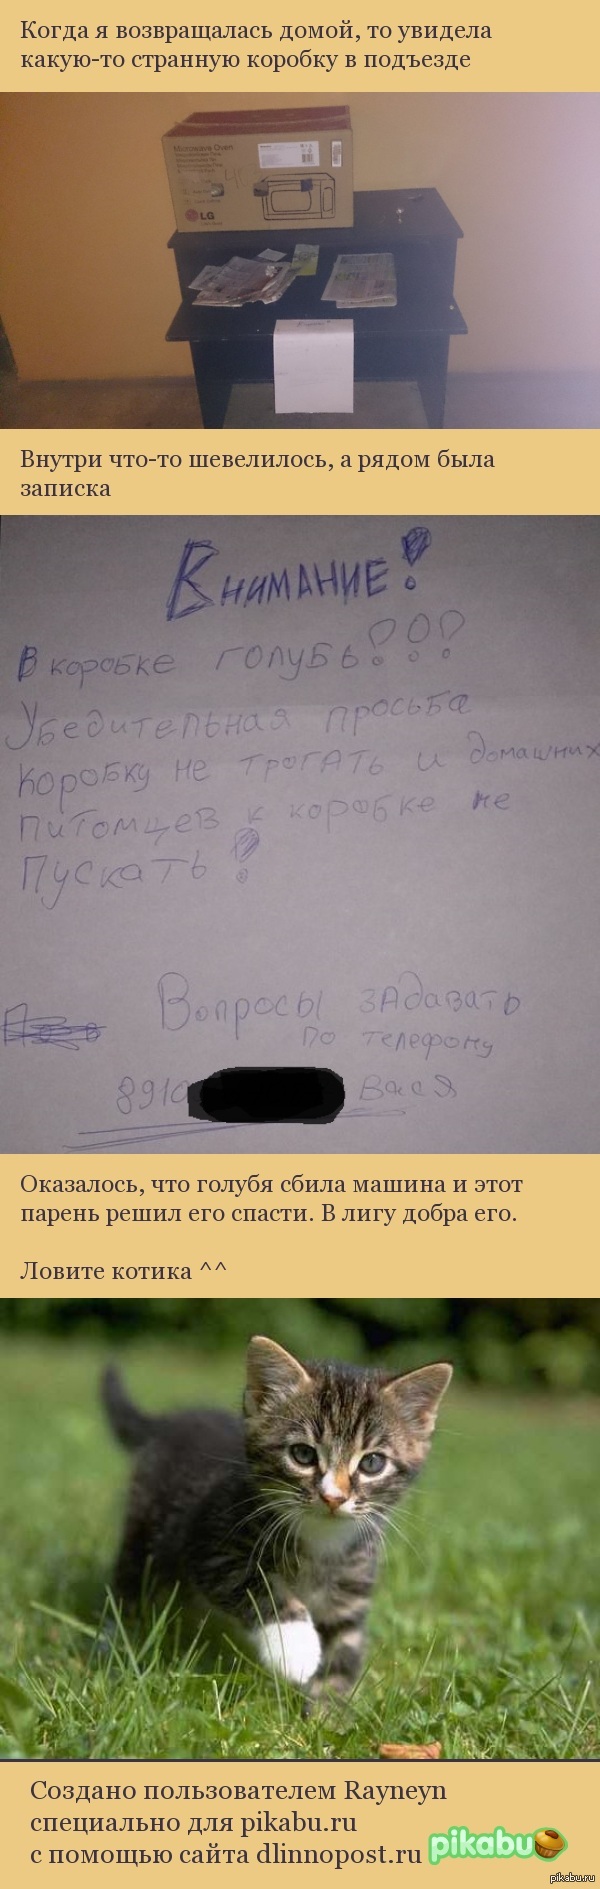 Когда я возвращалась домой, то увидела
какую-то странную коробку в подъезде
Microwave Oven
LG
Внутри что-то шевелилось, а рядом была
записка
Внимание!
В коробке голубь!!!
Убедительная просьба
коробку не трогать и домашних
питомцев к коробке не
пускать!
Вопросы задавать
по телефону
8910 Вася
Оказалось, что голубя сбила машина и этот
парень решил его спасти. В лигу добра его.
Ловите котика ^^
Создано пользователем Rayneyn
специально для pikabu.ru
с помощью сайта dlinnopost.ru
pikabu
pikabu.ru